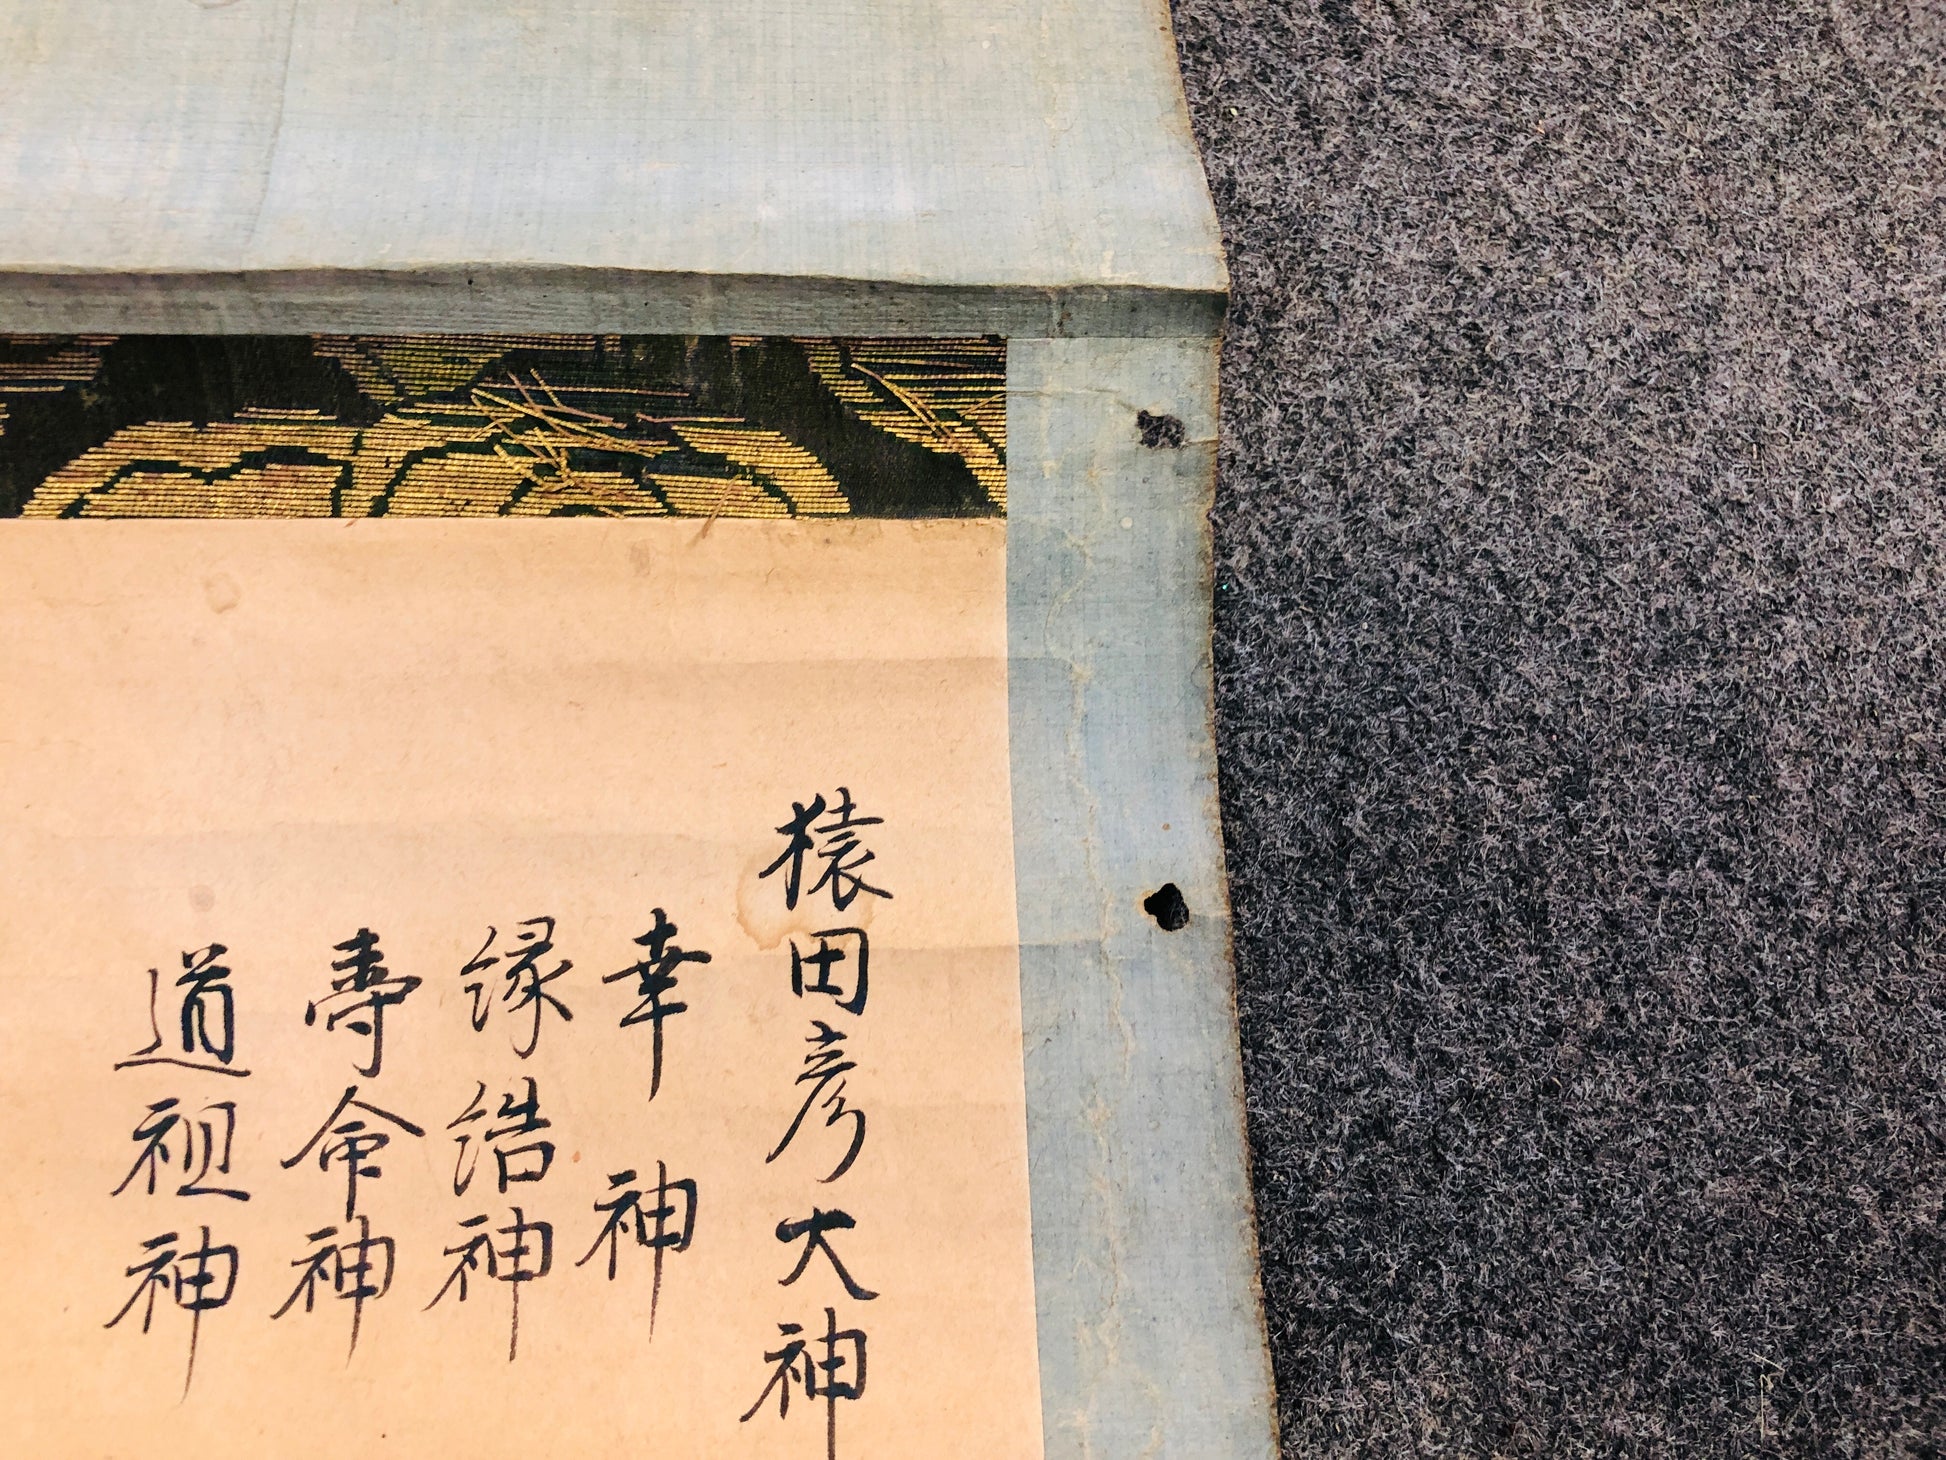 猿田彦大神
幸神
縁結神
壽命神
道祖神